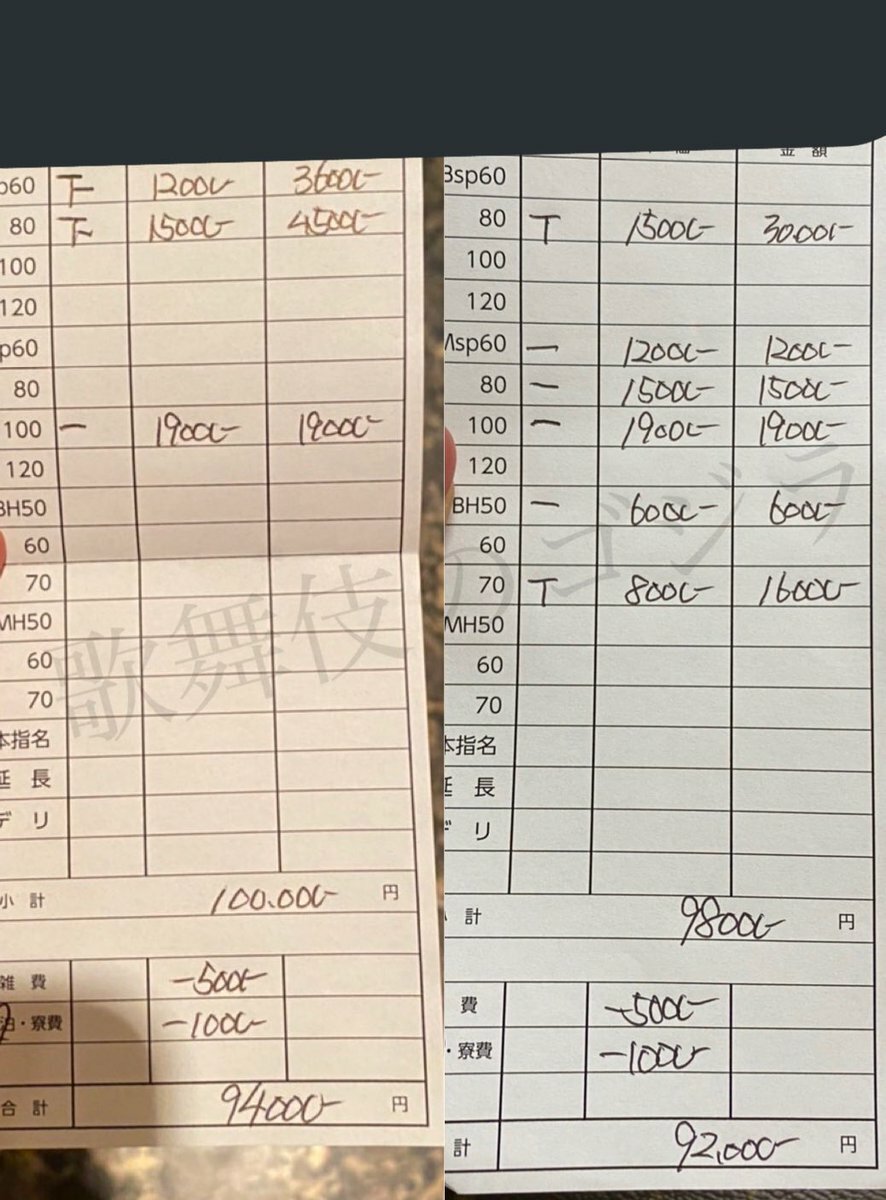 p60 下 12000- 36000-
80 下 15000- 45000-
100
120
p60
80
100 一 19000- 19000-
120
BH50
60
70
MH50
60
70
本指名
延 長
デ リ
小 計 100.000- 円
雑 費 -5000-
泊・寮費 -1000-
合 計 94000- 円
金 額
Bsp60
80 T 15000- 30000-
100
120
Msp60 一 12000- 12000-
80 一 15000- 15000-
100 一 19000- 19000-
120
BH50 一 6000- 6000-
60
70 T 8000- 16000-
MH50
60
70
本指名
延 長
デ リ
計 98000- 円
費 -5000-
・寮費 -1000-
計 92,000- 円
歌舞伎のゴジラ